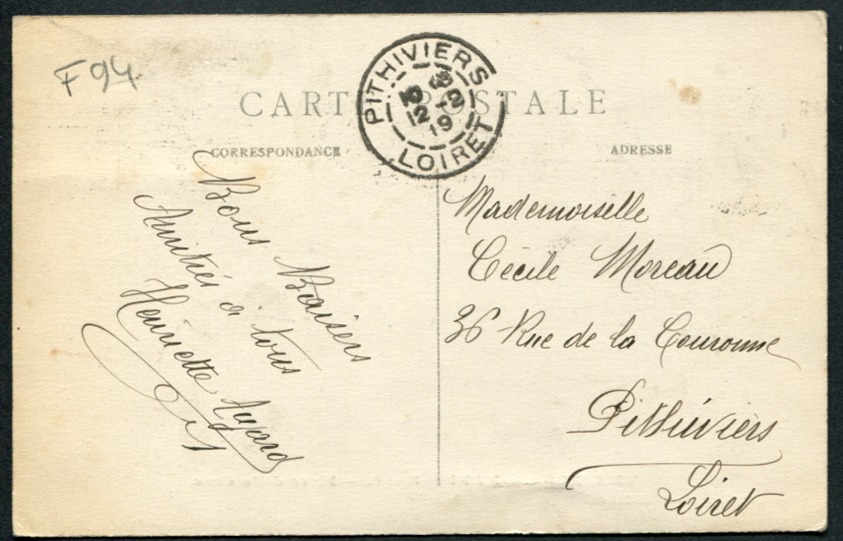 F94.
CARTE POSTALE
PITHIVIERS
LOIRET
CORRESPONDANCE
ADRESSE
Bons Baisers
Amitiés à tous
Henriette
Mademoiselle
Cécile Moreau
36 Rue de la Couronne
Pithiviers
Loiret